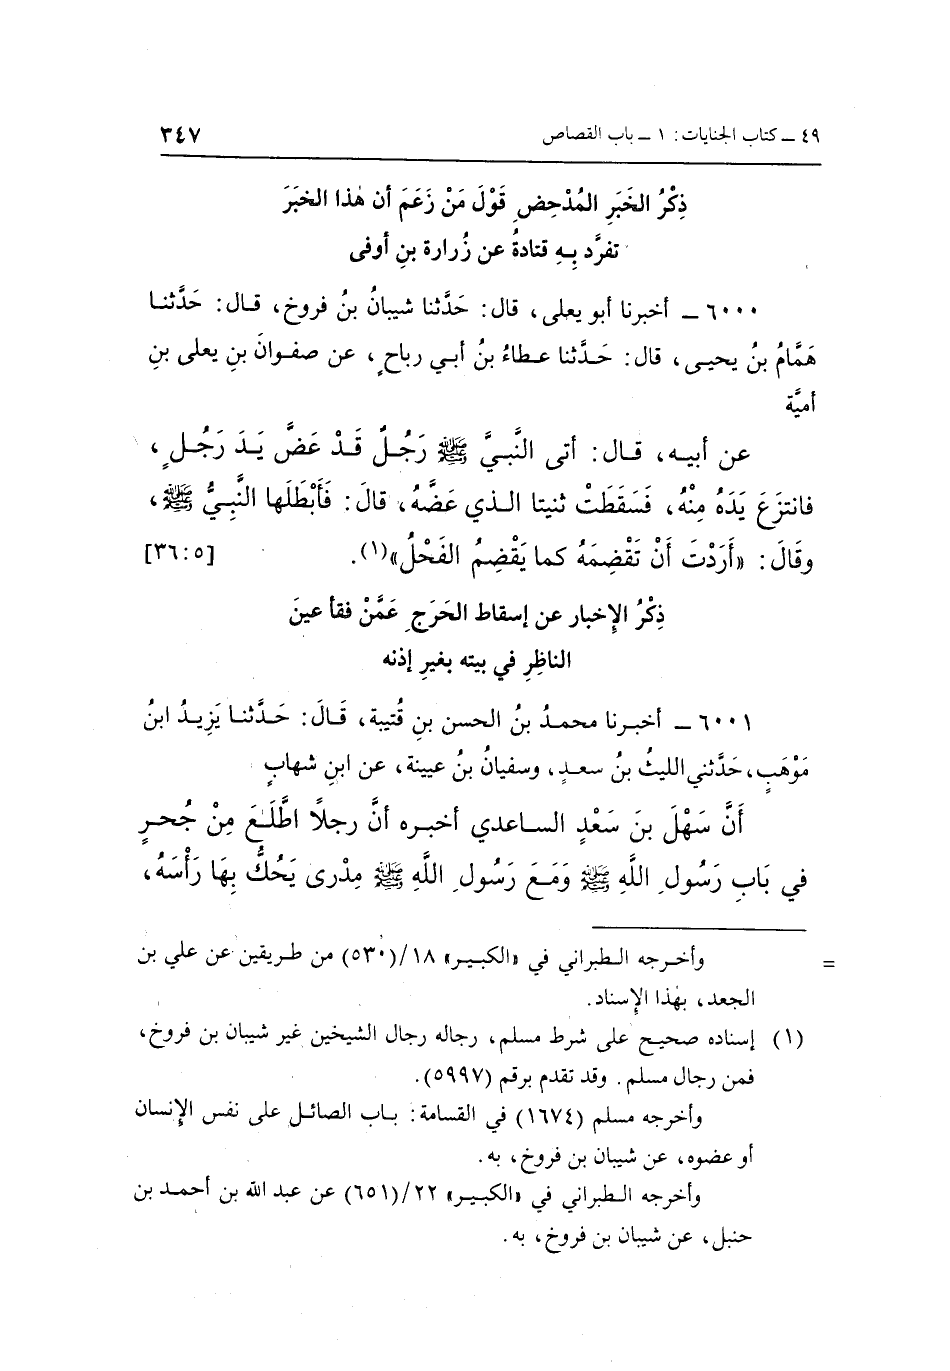 ٤٩ ــ كتاب الجنايات: ١ ــ باب القصاص ٣٤٧
ذِكْرُ الخَبَرِ المُدْحِضِ قَوْلَ مَنْ زَعَمَ أن هٰذا الخبَرَ
تفرَّد بِهِ قتادةُ عن زُرارة بنِ أوفى
٦٠٠٠ ــ أخبرنا أبو يعلى، قال: حَدَّثنا شيبانُ بنُ فروخ، قال: حَدَّثنا
هَمَّامُ بنُ يحيى، قال: حَدَّثنا عطاءُ بنُ أبي رباحٍ، عن صفوانَ بنِ يعلى بنِ
أميَّة
عن أبيه، قال: أتى النَّبيَّ ﷺ رَجُلٌ قَدْ عَضَّ يَدَ رَجُلٍ،
فانتزَعَ يَدَهُ مِنْهُ، فَسَقَطَتْ ثنيتا الذي عَضَّهُ، قالَ: فَأَبْطَلَها النَّبِيُّ ﷺ،
وقَالَ: «أَرَدْتَ أَنْ تَقْضِمَهُ كما يَقْضِمُ الفَحْلُ»(١). [٣٦:٥]
ذِكْرُ الإخبار عن إسقاط الحَرَجِ عَمَّنْ فقأ عينَ
الناظِرِ في بيته بغيرِ إذنه
٦٠٠١ ــ أخبرنا محمدُ بنُ الحسن بنِ قُتيبة، قَالَ: حَدَّثنا يَزِيدُ ابنُ
مَوْهَبٍ، حَدَّثني الليثُ بنُ سعدٍ، وسفيانُ بنُ عيينة، عن ابنِ شهابٍ
أَنَّ سَهْلَ بنَ سَعْدٍ الساعدي أخبره أنَّ رجلاً اطَّلَعَ مِنْ جُحرٍ
في بَابِ رَسُولِ اللَّهِ ﷺ وَمَعَ رَسُولِ اللَّهِ ﷺ مِدْرى يَحُكُّ بِهَا رَأْسَهُ،
= وأخرجه الطبراني في «الكبير» ١٨/(٥٣٠) من طريقين عن علي بن
الجعد، بهٰذا الإسناد.
(١) إسناده صحيح على شرط مسلم، رجاله رجال الشيخين غير شيبان بن فروخ،
فمن رجال مسلم. وقد تقدم برقم (٥٩٩٧).
وأخرجه مسلم (١٦٧٤) في القسامة: باب الصائل على نفس الإنسان
أو عضوه، عن شيبان بن فروخ، به.
وأخرجه الطبراني في «الكبير» ٢٢/(٦٥١) عن عبد الله بن أحمد بن
حنبل، عن شيبان بن فروخ، به.